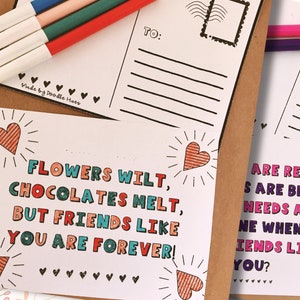 TO:
Made by Doodle Hugs
FLOWERS WILT,
CHOCOLATES MELT,
BUT FRIENDS LIKE
YOU ARE FOREVER!
ARE RE
S ARE B
NEEDS A
NE WHEN
RIENDS LI
YOU?